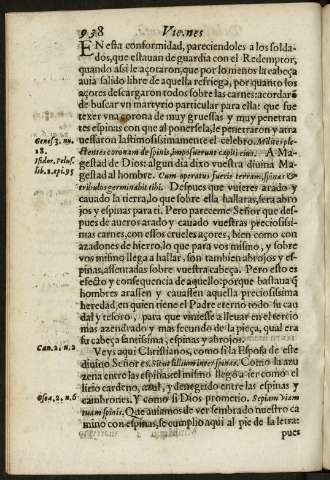 938 Viernes
EN esta conformidad, pareciendoles a los solda-
dos, que estauan de guardia con el Redemptor,
quando assi le açotaron, que por lo menos la cabeça
auia salido libre de aquella refriega, por quanto los
açotes descargaron todos sobre las carnes: acordarõ
de buscar vn martyrio particular para ella: que fue
texer vna corona de muy gruessas y muy penetran
tes espinas con que al ponersela, le penetraron y atra
uessaron lastimosissimamente el celebro. Milites ple-
Genes. 3. nu.
ctentes coronam de spinis, imposuerunt capiti eius. A Ma-
18.
gestad de Dios: algun dia dixo vuestra diuina Ma-
Isidor. Pelus.
gestad al hombre. Cum operatus fueris terram, spinas &
lib. 1. epi. 95
tribulos germinabit tibi. Despues que vuieres arado y
cauado la tierra, lo que sobre ella hallaras, sera abro
jos y espinas para ti. Pero pareceme Señor que des-
pues de aueros arado y cauado vuestras preciosissi-
mas carnes, con essos crueles açotes, bien como con
azadones de hierro, lo que para vos mismo, y sobre
vos mismo llega a hallar, son tambien abrojos y es-
pinas, assentadas sobre vuestra cabeça. Pero esto es
efecto y consequencia de aquello: porque bastaua q̃
hombres arassen y cauassen aquella preciosissima
heredad, en quien tiene el Padre eterno todo su cau
dal y tesoro, para que viniesse a lleuar en el tercio
mas azendrado y mas fecundo de la pieça, qual era
su cabeça santissima, espinas y abrojos.
Can. 2. n. 2
Veys aqui Christianos, como si la Esposa de este
diuino Señor es. Sicut lilium inter spinas. Como la azu
zena entre las espinas: el mismo llego a ser como el
lirio cardeno, azul, y denegrido entre las espinas y
Osea, 2, n. 6
cambrones. Y como si Dios prometio. Sepiam viam
tuam spinis. Que auiamos de ver sembrado nuestro ca
mino con espinas, se cumplio aqui al pie de la letra:
pues